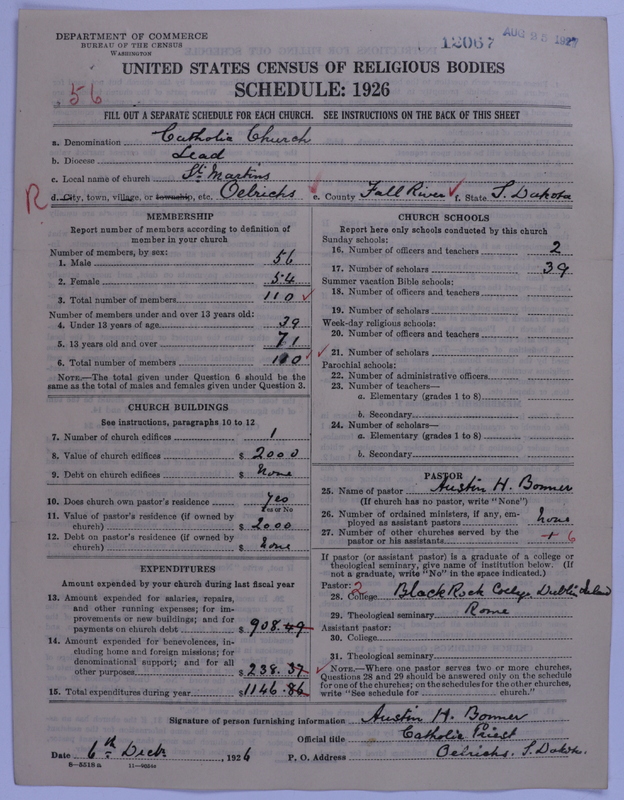 DEPARTMENT OF COMMERCE
BUREAU OF THE CENSUS
WASHINGTON
12067
AUG 25 1927
UNITED STATES CENSUS OF RELIGIOUS BODIES
SCHEDULE: 1926
56
FILL OUT A SEPARATE SCHEDULE FOR EACH CHURCH. SEE INSTRUCTIONS ON THE BACK OF THIS SHEET
a. Denomination Catholic Church
b. Diocese Lead
c. Local name of church St. Martins
R d. City, town, village, or township, etc. Oelrichs e. County Fall River f. State S. Dakota
MEMBERSHIP
Report number of members according to definition of
member in your church
Number of members, by sex:
1. Male 56
2. Female 54
3. Total number of members 110
Number of members under and over 13 years old:
4. Under 13 years of age 39
5. 13 years old and over 71
6. Total number of members 110
NOTE.—The total given under Question 6 should be the
same as the total of males and females given under Question 3.
CHURCH BUILDINGS
See instructions, paragraphs 10 to 12
7. Number of church edifices 1
8. Value of church edifices $ 2000
9. Debt on church edifices $ None
10. Does church own pastor's residence yes
Yes or No
11. Value of pastor's residence (if owned by
church) $ 2000
12. Debt on pastor's residence (if owned by
church) $ None
EXPENDITURES
Amount expended by your church during last fiscal year
13. Amount expended for salaries, repairs,
and other running expenses; for im-
provements or new buildings; and for
payments on church debt $ 908.49
14. Amount expended for benevolences, in-
cluding home and foreign missions; for
denominational support; and for all
other purposes $ 238.37
15. Total expenditures during year $ 1146.86
CHURCH SCHOOLS
Report here only schools conducted by this church
Sunday schools:
16. Number of officers and teachers 2
17. Number of scholars 39
Summer vacation Bible schools:
18. Number of officers and teachers
19. Number of scholars
Week-day religious schools:
20. Number of officers and teachers
21. Number of scholars
Parochial schools:
22. Number of administrative officers
23. Number of teachers—
a. Elementary (grades 1 to 8)
b. Secondary
24. Number of scholars—
a. Elementary (grades 1 to 8)
b. Secondary
PASTOR
25. Name of pastor Austin H. Bonner
(If church has no pastor, write "None")
26. Number of ordained ministers, if any, em-
ployed as assistant pastors None
27. Number of other churches served by the
pastor or his assistants 6
If pastor (or assistant pastor) is a graduate of a college or
theological seminary, give name of institution below. (If
not a graduate, write "No" in the space indicated.)
Pastor: 2
28. College Black Rock College Dublin Ireland
29. Theological seminary Rome
Assistant pastor:
30. College
31. Theological seminary
NOTE.—Where one pastor serves two or more churches,
Questions 28 and 29 should be answered only on the schedule
for one of the churches; on the schedules for the other churches,
write "See schedule for church."
Signature of person furnishing information Austin H. Bonner
Official title Catholic Priest
Date 6th Dec, 1926 P. O. Address Oelrichs. S. Dakota.
8—5518a 11—9024